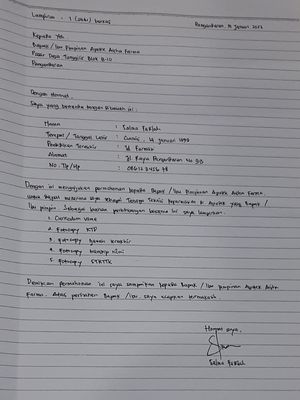 Lampiran : 1 (satu) berkas
Pangandaran, 14 Januari 2022
Kepada Yth
Bapak / Ibu Pimpinan Apotek Aisha Farma
Pasar Desa Blok B-10
Pangandaran
Dengan Hormat,
Saya yang bertanda tangan dibawah ini :
Nama : Salwa
Tempat / Tanggal Lahir : Ciamis, 14 Januari
Pendidikan Terakhir : Farmasi
Alamat : Jl. Raya Pangandaran No
No. Tlp / Hp :
Dengan ini mengajukan permohonan kepada Bapak / Ibu Pimpinan Apotek Aisha Farma,
untuk dapat Tenaga Teknis Kefarmasian di Apotek yang Bapak /
Ibu pimpin. Sebagai bahan pertimbangan bersama ini saya lampirkan:
1. Curriculum Vitae
2. Fotocopy KTP
3. Fotocopy Ijazah terakhir
4. Fotocopy transkip nilai
5. Fotocopy STRTTK
Demikian permohonan ini saya sampaikan kepada Bapak / Ibu Pimpinan Apotek Aisha
Farma. Atas perhatian Bapak / Ibu, saya ucapkan terimakasih.
Hormat saya,
Salwa